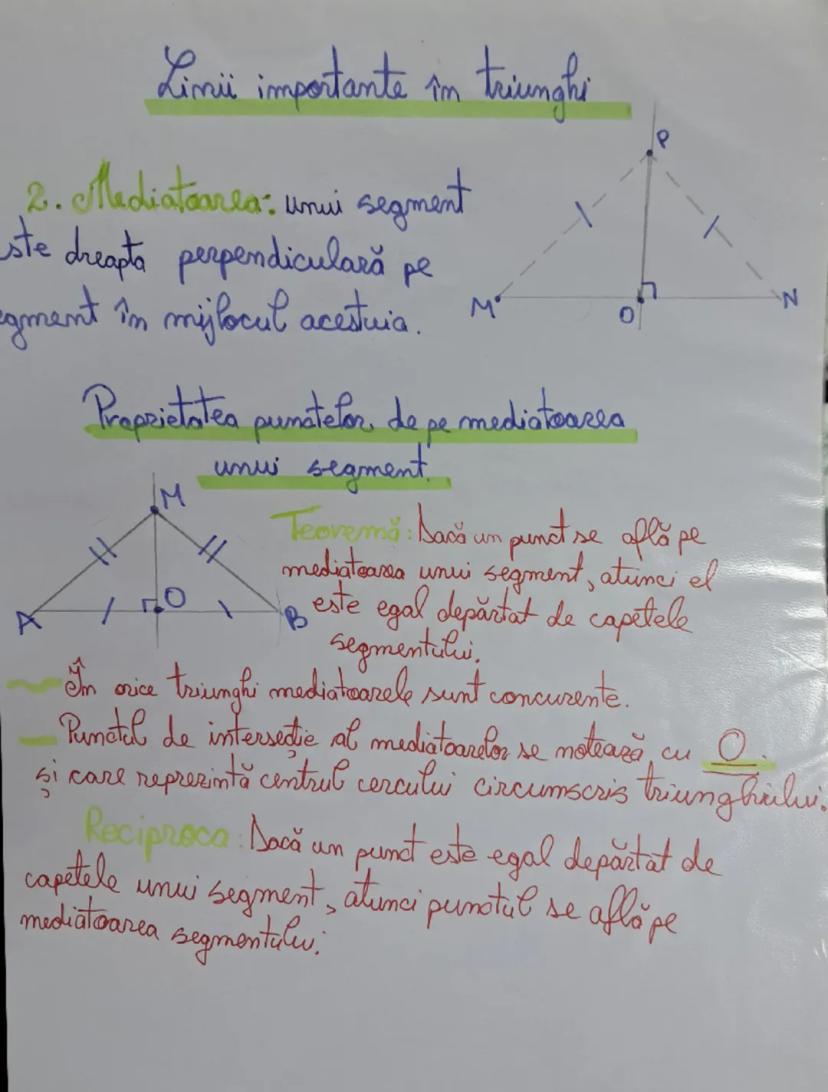 Linii importante în triunghi
P
2. Mediatoarea: unui segment
ste dreapta perpendiculară pe
M O N
egment în mijlocul acestuia.
Proprietatea punctelor de pe mediatoarea
unui segment.
M
Teoremă: Dacă un punct se află pe
mediatoarea unui segment, atunci el
A O B
este egal depărtat de capetele
segmentului.
În orice triunghi mediatoarele sunt concurente.
Punctul de intersecție al mediatoarelor se notează cu O.
și care reprezintă centrul cercului circumscris triunghiului.
Reciproca: Dacă un punct este egal depărtat de
capetele unui segment, atunci punctul se află pe
mediatoarea segmentului.